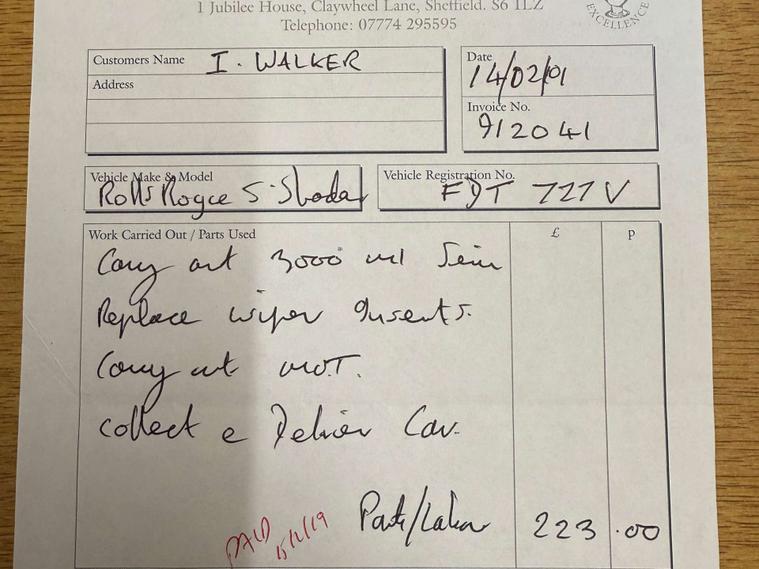 1 Jubilee House, Claywheel Lane, Sheffield. S6 1LZ
Telephone: 07774 295595
EXCELLENCE
Customers Name I. WALKER
Address
Date
14/02/01
Invoice No.
912041
Vehicle Make & Model
Rolls Royce S. Shadow
Vehicle Registration No.
727 V
Work Carried Out / Parts Used £ p
Carry out 3000 ml
Replace wiper Inserts.
Carry out M.O.T.
Collect & Deliver Car.
PAID
Parts/Labour 223.00